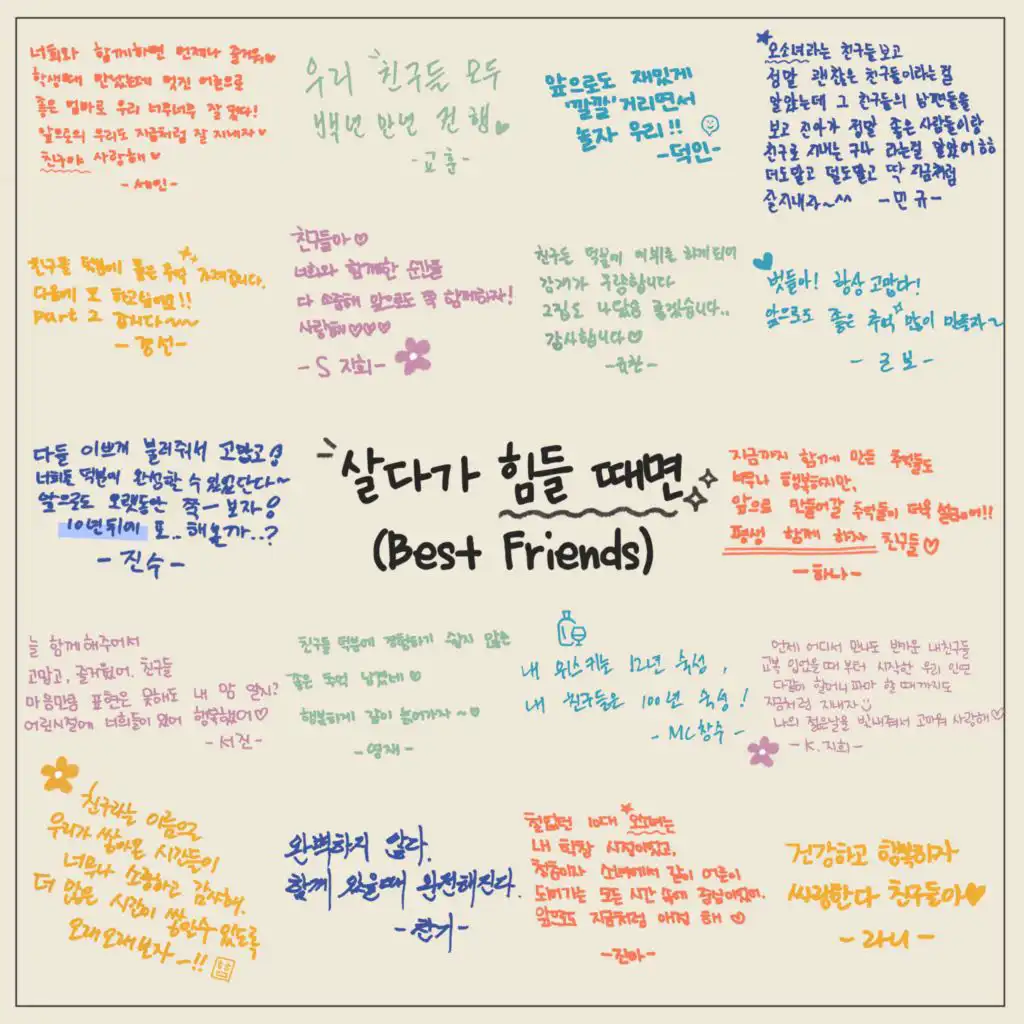 너희와 함께하면 언제나 즐거워♥
학생때 만났는데 멋진 어른으로
좋은 엄마로 우리 너무너무 잘 컸다!
앞으로의 우리도 지금처럼 잘 지내자♥
친구야 사랑해♥
-세인-
우리 친구들 모두
백년 만년 건행♥
-교훈-
앞으로도 재밌게
'깔깔'거리면서
놀자 우리!!
-덕인-
오소녀라는 친구들보고
정말 괜찮은 친구들이라는걸
알았는데 그 친구들의 남편들을
보고 진아가 정말 좋은 사람들이랑
친구로 지내는구나 라는걸 알았어ㅎㅎ
더도말고 덜도말고 딱 지금처럼
잘지내자~^^ -민규-
친구들 덕분에 좋은 추억 가져갑니다.
다음에 또 하고싶네요!!
Part 2 갑시다~~
-경선-
친구들아♡
너희와 함께한 순간들
다 소중해 앞으로도 쭉 함께하자!
사랑해♡♡♡
-S 지희-
친구들 덕분에 데뷔를 하게되어
감개가 무량합니다
2집도 나왔음 좋겠습니다..
감사합니다♡
벗들아! 항상 고맙다!
앞으로도 좋은 추억 많이 만들자~
-근보-
다들 이쁘게 불러줘서 고맙고!
너희들 덕분에 완성할 수 있었단다~
앞으로도 오랫동안 쭉- 보자!
10년뒤에 또.. 해볼까..?
-진수-
살다가 힘들 때면
(Best Friends)
지금까지 함께 만든 추억들도
너무나 행복하지만,
앞으로 만들어갈 추억들이 더욱 설레어!!
평생 함께 하자 친구들♡
-하나-
늘 함께해주어서
고맙고, 즐거웠어. 친구들
마음만큼 표현은 못해도 내 맘 알지?
어린시절에 너희들이 있어 행복했어♡
-서진-
친구들 덕분에 경험하기 쉽지 않은
좋은 추억 남겼네♡
행복하게 같이 늙어가자~♡
-영재-
내 위스키는 12년 숙성,
내 친구들은 100년 숙성!
-MC창수-
언제 어디서 만나도 반가운 내친구들
교복 입었을 때 부터 시작한 우리 인연
다같이 할머니 파마 할 때까지도
지금처럼 지내자
나의 젊은날을 빛내줘서 고마워 사랑해♡
-K.지희-
친구라는 이름으로
우리가 쌓아온 시간들이
너무나 소중하고 감사해.
더 많은 시간이 쌓일수 있도록
오래오래보자~!!
완벽하지 않다.
함께 있을때 완전해진다.
-찬기-
철없던 10대 오소녀는
내 학창 시절이었고,
청춘이자 소녀에서 같이 어른이
되어가는 모든 시간 속에 중심이었어.
앞으로도 지금처럼 애정 해♡
-진아-
건강하고 행복하자
싸랑한다 친구들아♥
-라니-